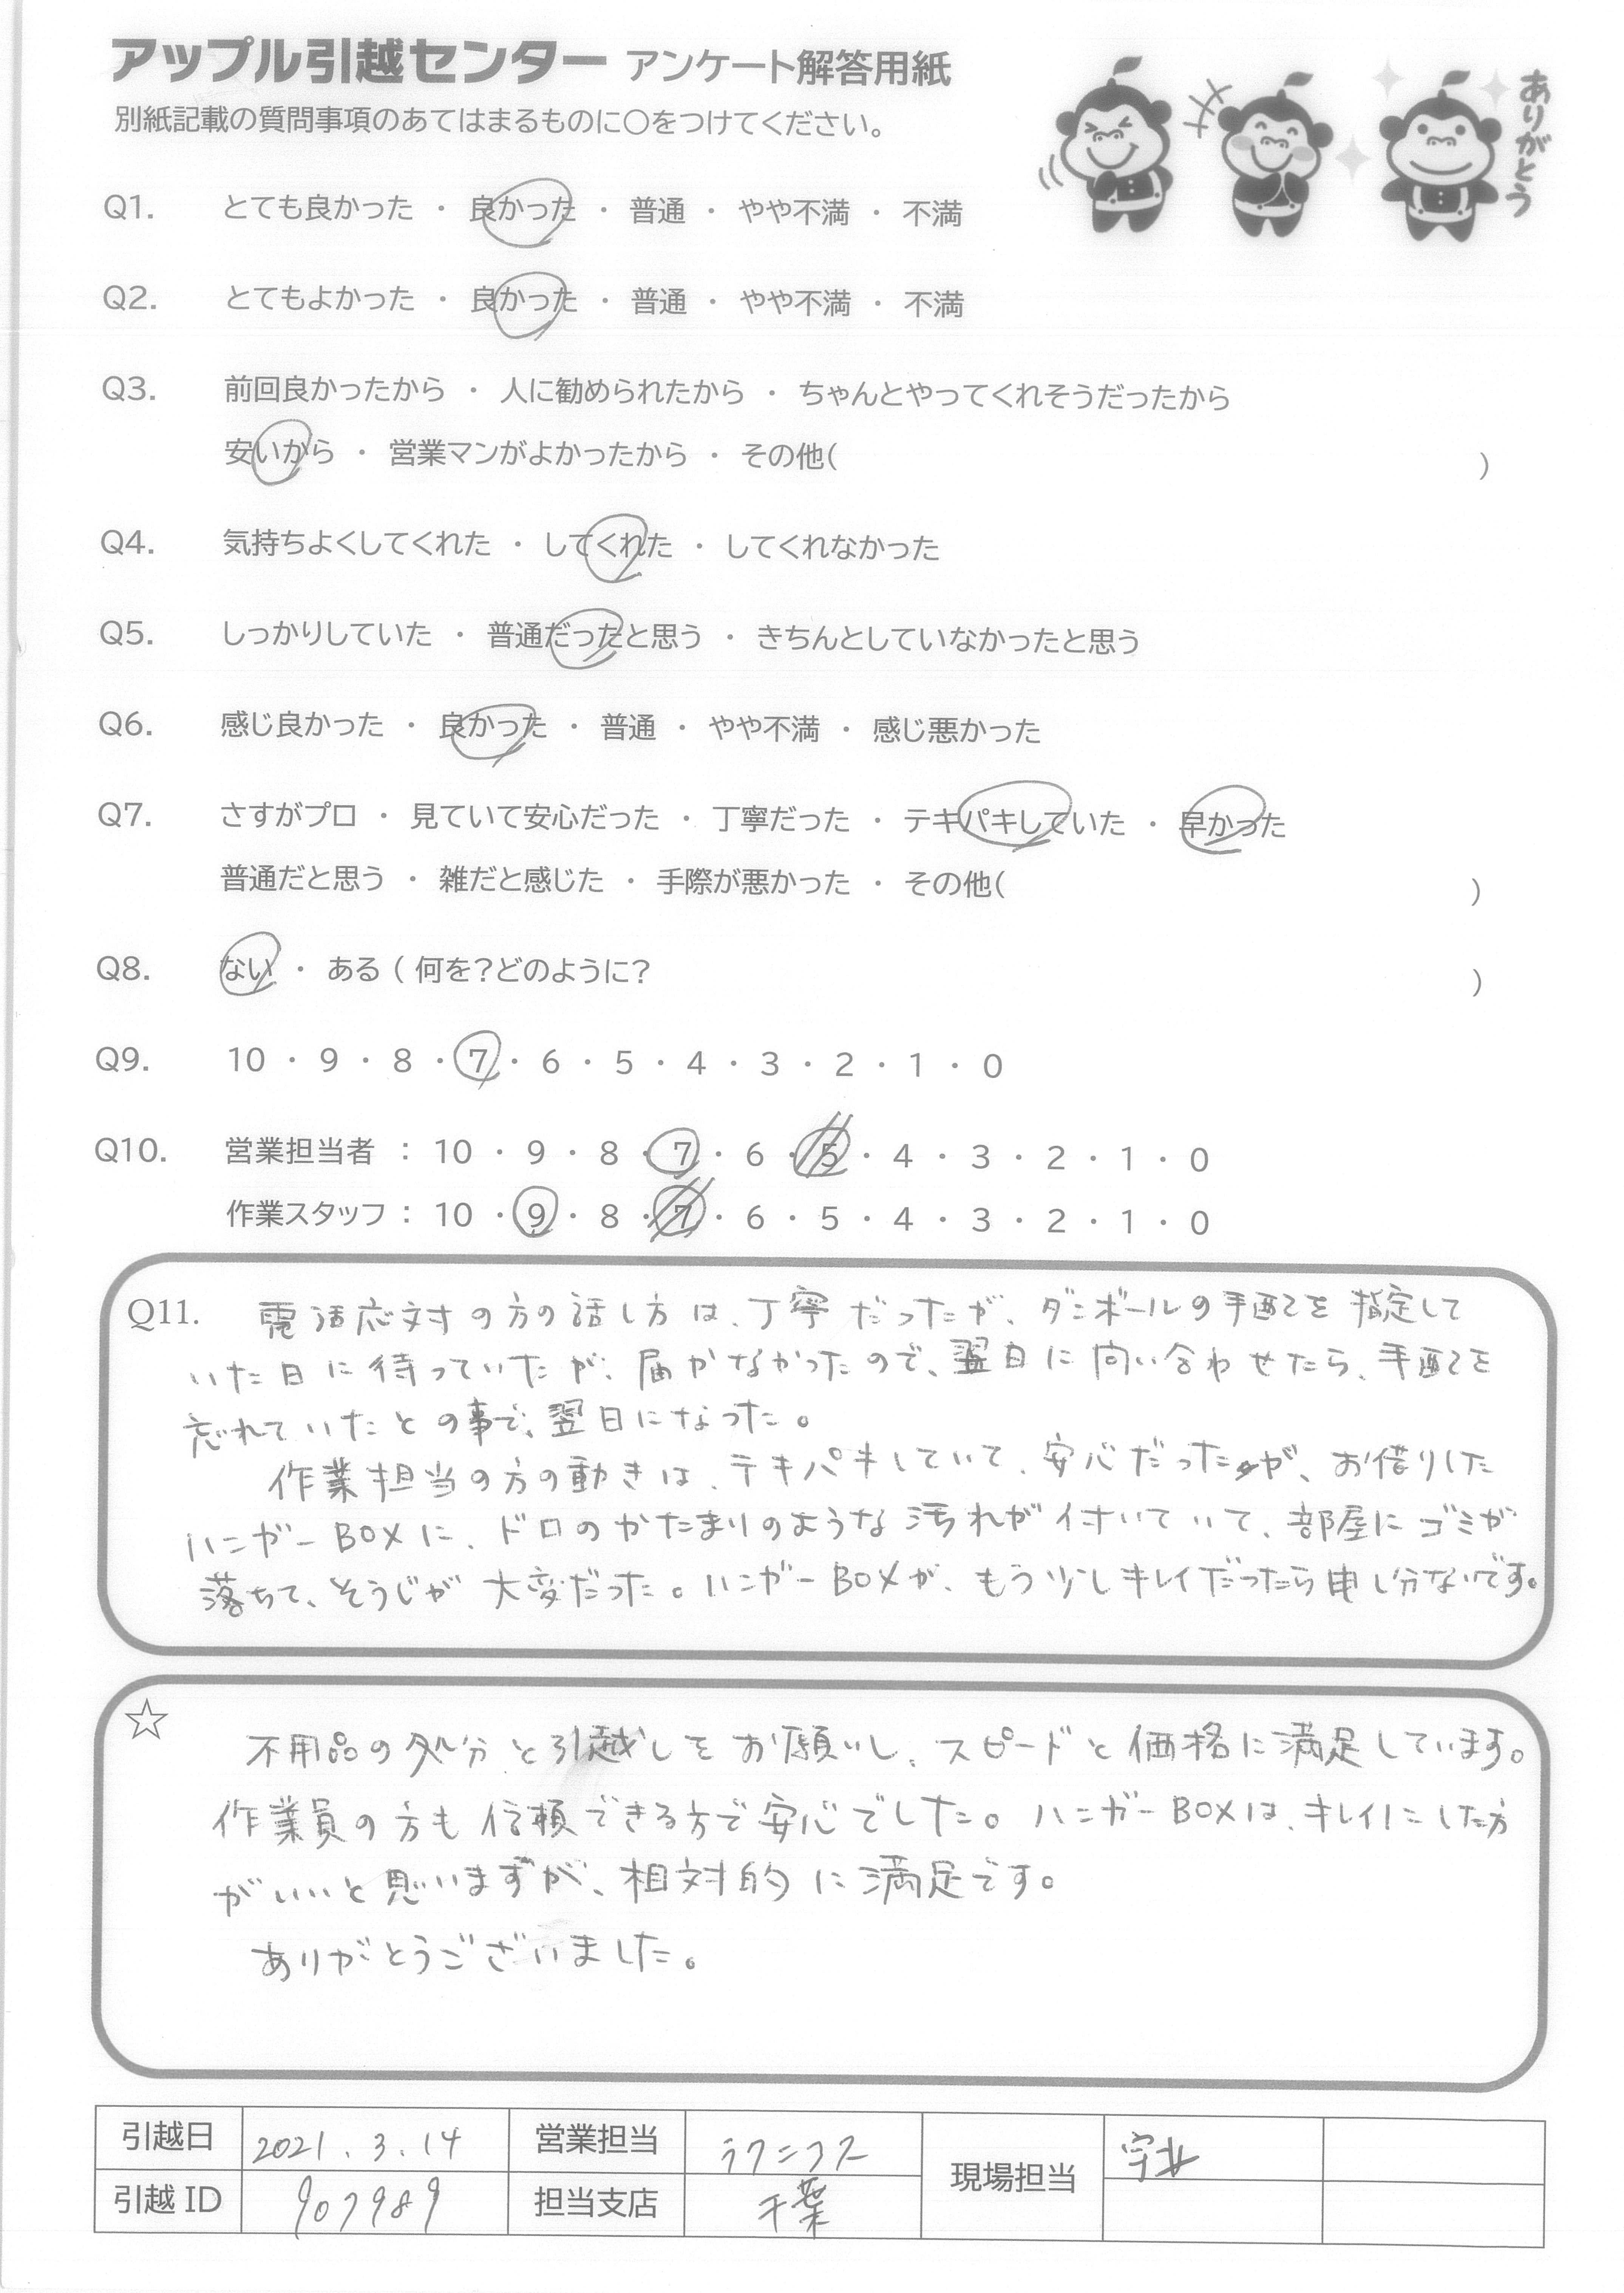 アップル引越センター アンケート解答用紙
別紙記載の質問事項のあてはまるものに○をつけてください。
ありがとう
Q1. とても良かった ・ 良かった ・ 普通 ・ やや不満 ・ 不満
Q2. とてもよかった ・ 良かった ・ 普通 ・ やや不満 ・ 不満
Q3. 前回良かったから ・ 人に勧められたから ・ ちゃんとやってくれそうだったから
安いから ・ 営業マンがよかったから ・ その他( )
Q4. 気持ちよくしてくれた ・ してくれた ・ してくれなかった
Q5. しっかりしていた ・ 普通だったと思う ・ きちんとしていなかったと思う
Q6. 感じ良かった ・ 良かった ・ 普通 ・ やや不満 ・ 感じ悪かった
Q7. さすがプロ ・ 見ていて安心だった ・ 丁寧だった ・ テキパキしていた ・ 早かった
普通だと思う ・ 雑だと感じた ・ 手際が悪かった ・ その他( )
Q8. ない ・ ある ( 何を?どのように? )
Q9. 10 ・ 9 ・ 8 ・ 7 ・ 6 ・ 5 ・ 4 ・ 3 ・ 2 ・ 1 ・ 0
Q10. 営業担当者 : 10 ・ 9 ・ 8 ・ 7 ・ 6 ・ 5 ・ 4 ・ 3 ・ 2 ・ 1 ・ 0
作業スタッフ : 10 ・ 9 ・ 8 ・ 7 ・ 6 ・ 5 ・ 4 ・ 3 ・ 2 ・ 1 ・ 0
Q11. 電話応対の方の話し方は、丁寧だったが、ダンボールの手配を指定して
いた日に待っていたが、届かなかったので、翌日に問い合わせたら、手配を
忘れていたとの事で、翌日になった。
作業担当の方の動きは、テキパキしていて、安心だったが、お借りした
ハンガーBOXに、ドロのかたまりのような汚れが付いていて、部屋にゴミが
落ちて、そうじが大変だった。ハンガーBOXが、もう少しキレイだったら申し分ないです。
☆ 不用品の処分と引越しをお願いし、スピードと価格に満足しています。
作業員の方も信頼できる方で安心でした。ハンガーBOXは、キレイにした方
がいいと思いますが、相対的に満足です。
ありがとうございました。
引越日 2021.3.14 営業担当 現場担当
引越ID 907989 担当支店 千葉